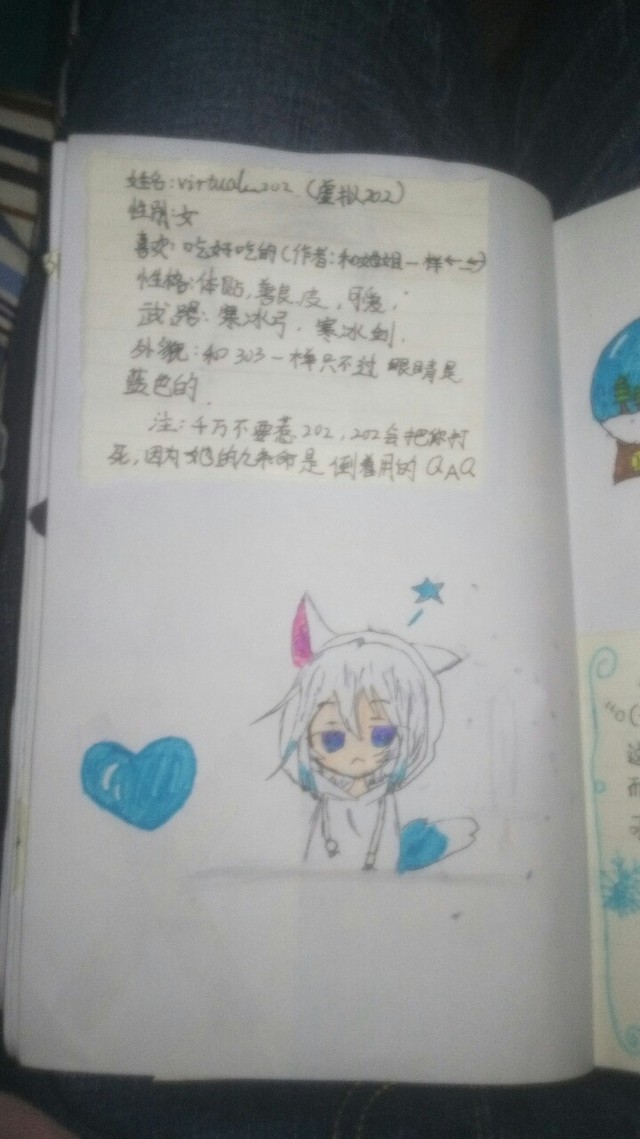 姓名:virtual202.(虚拟202)
性别:女
喜欢:吃好吃的(作者:和姐姐一样←_→)
性格:体贴,善良,皮,可爱,
武器:寒冰弓,寒冰剑,
外貌:和303一样只不过眼睛是
蓝色的.
注:千万不要惹202,202会把你打
死,因为她的九条命是倒着用的QAQ
这
而